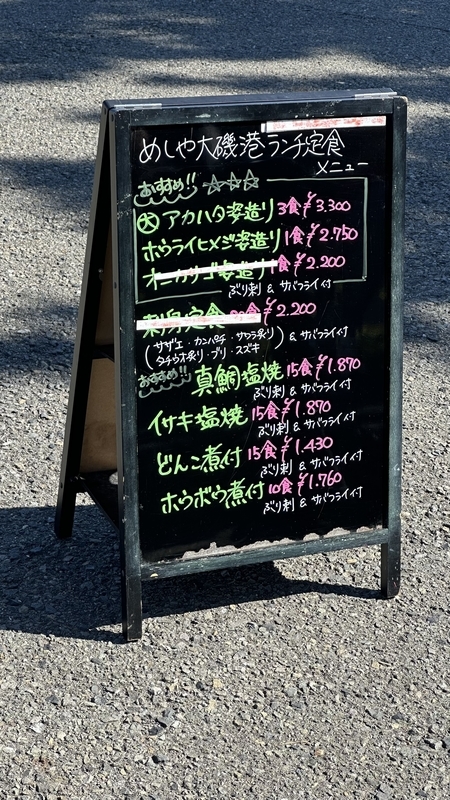 めしや大磯港ランチ定食
メニュー
おすすめ!! ☆☆☆
大 アカハタ姿造り 3食 ¥3.300
ホウライヒメジ姿造り 1食 ¥2.750
オニカサゴ姿造り 1食 ¥2.200
ぶり刺 & サバフライ付
刺身定食 20食 ¥2.200
(サザエ・カンパチ・サワラ炙り
タチウオ炙り・ブリ・スズキ) & サバフライ付
おすすめ!! 真鯛塩焼 15食 ¥1.870
ぶり刺 & サバフライ付
イサキ塩焼 15食 ¥1.870
ぶり刺 & サバフライ付
どんこ煮付 15食 ¥1.430
ぶり刺 & サバフライ付
ホウボウ煮付 10食 ¥1.760
ぶり刺 & サバフライ付